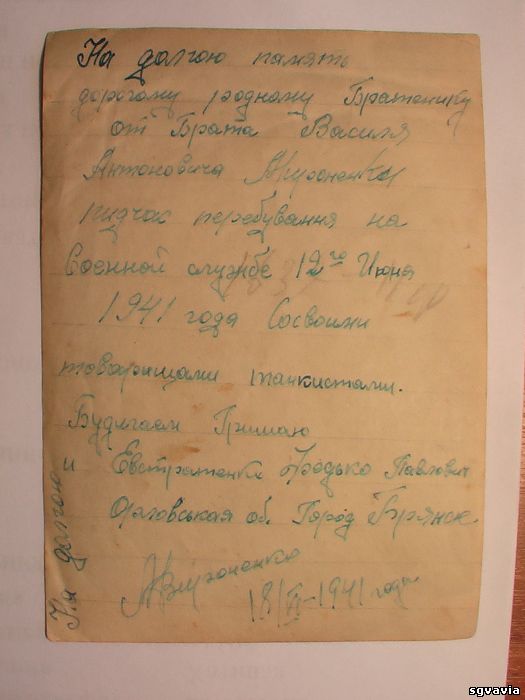 На долгою память
дорогому родному Братенику
от Брата Василя
Антоновича
пидчас перебування на
Военной службе 12го Июня
1941 года Сосвоими
товарищами танкистами.
и Евстратенко Павлович
Орловськая об. Город Брянск.
18/VI-1941 года
На долгою
sgvavia